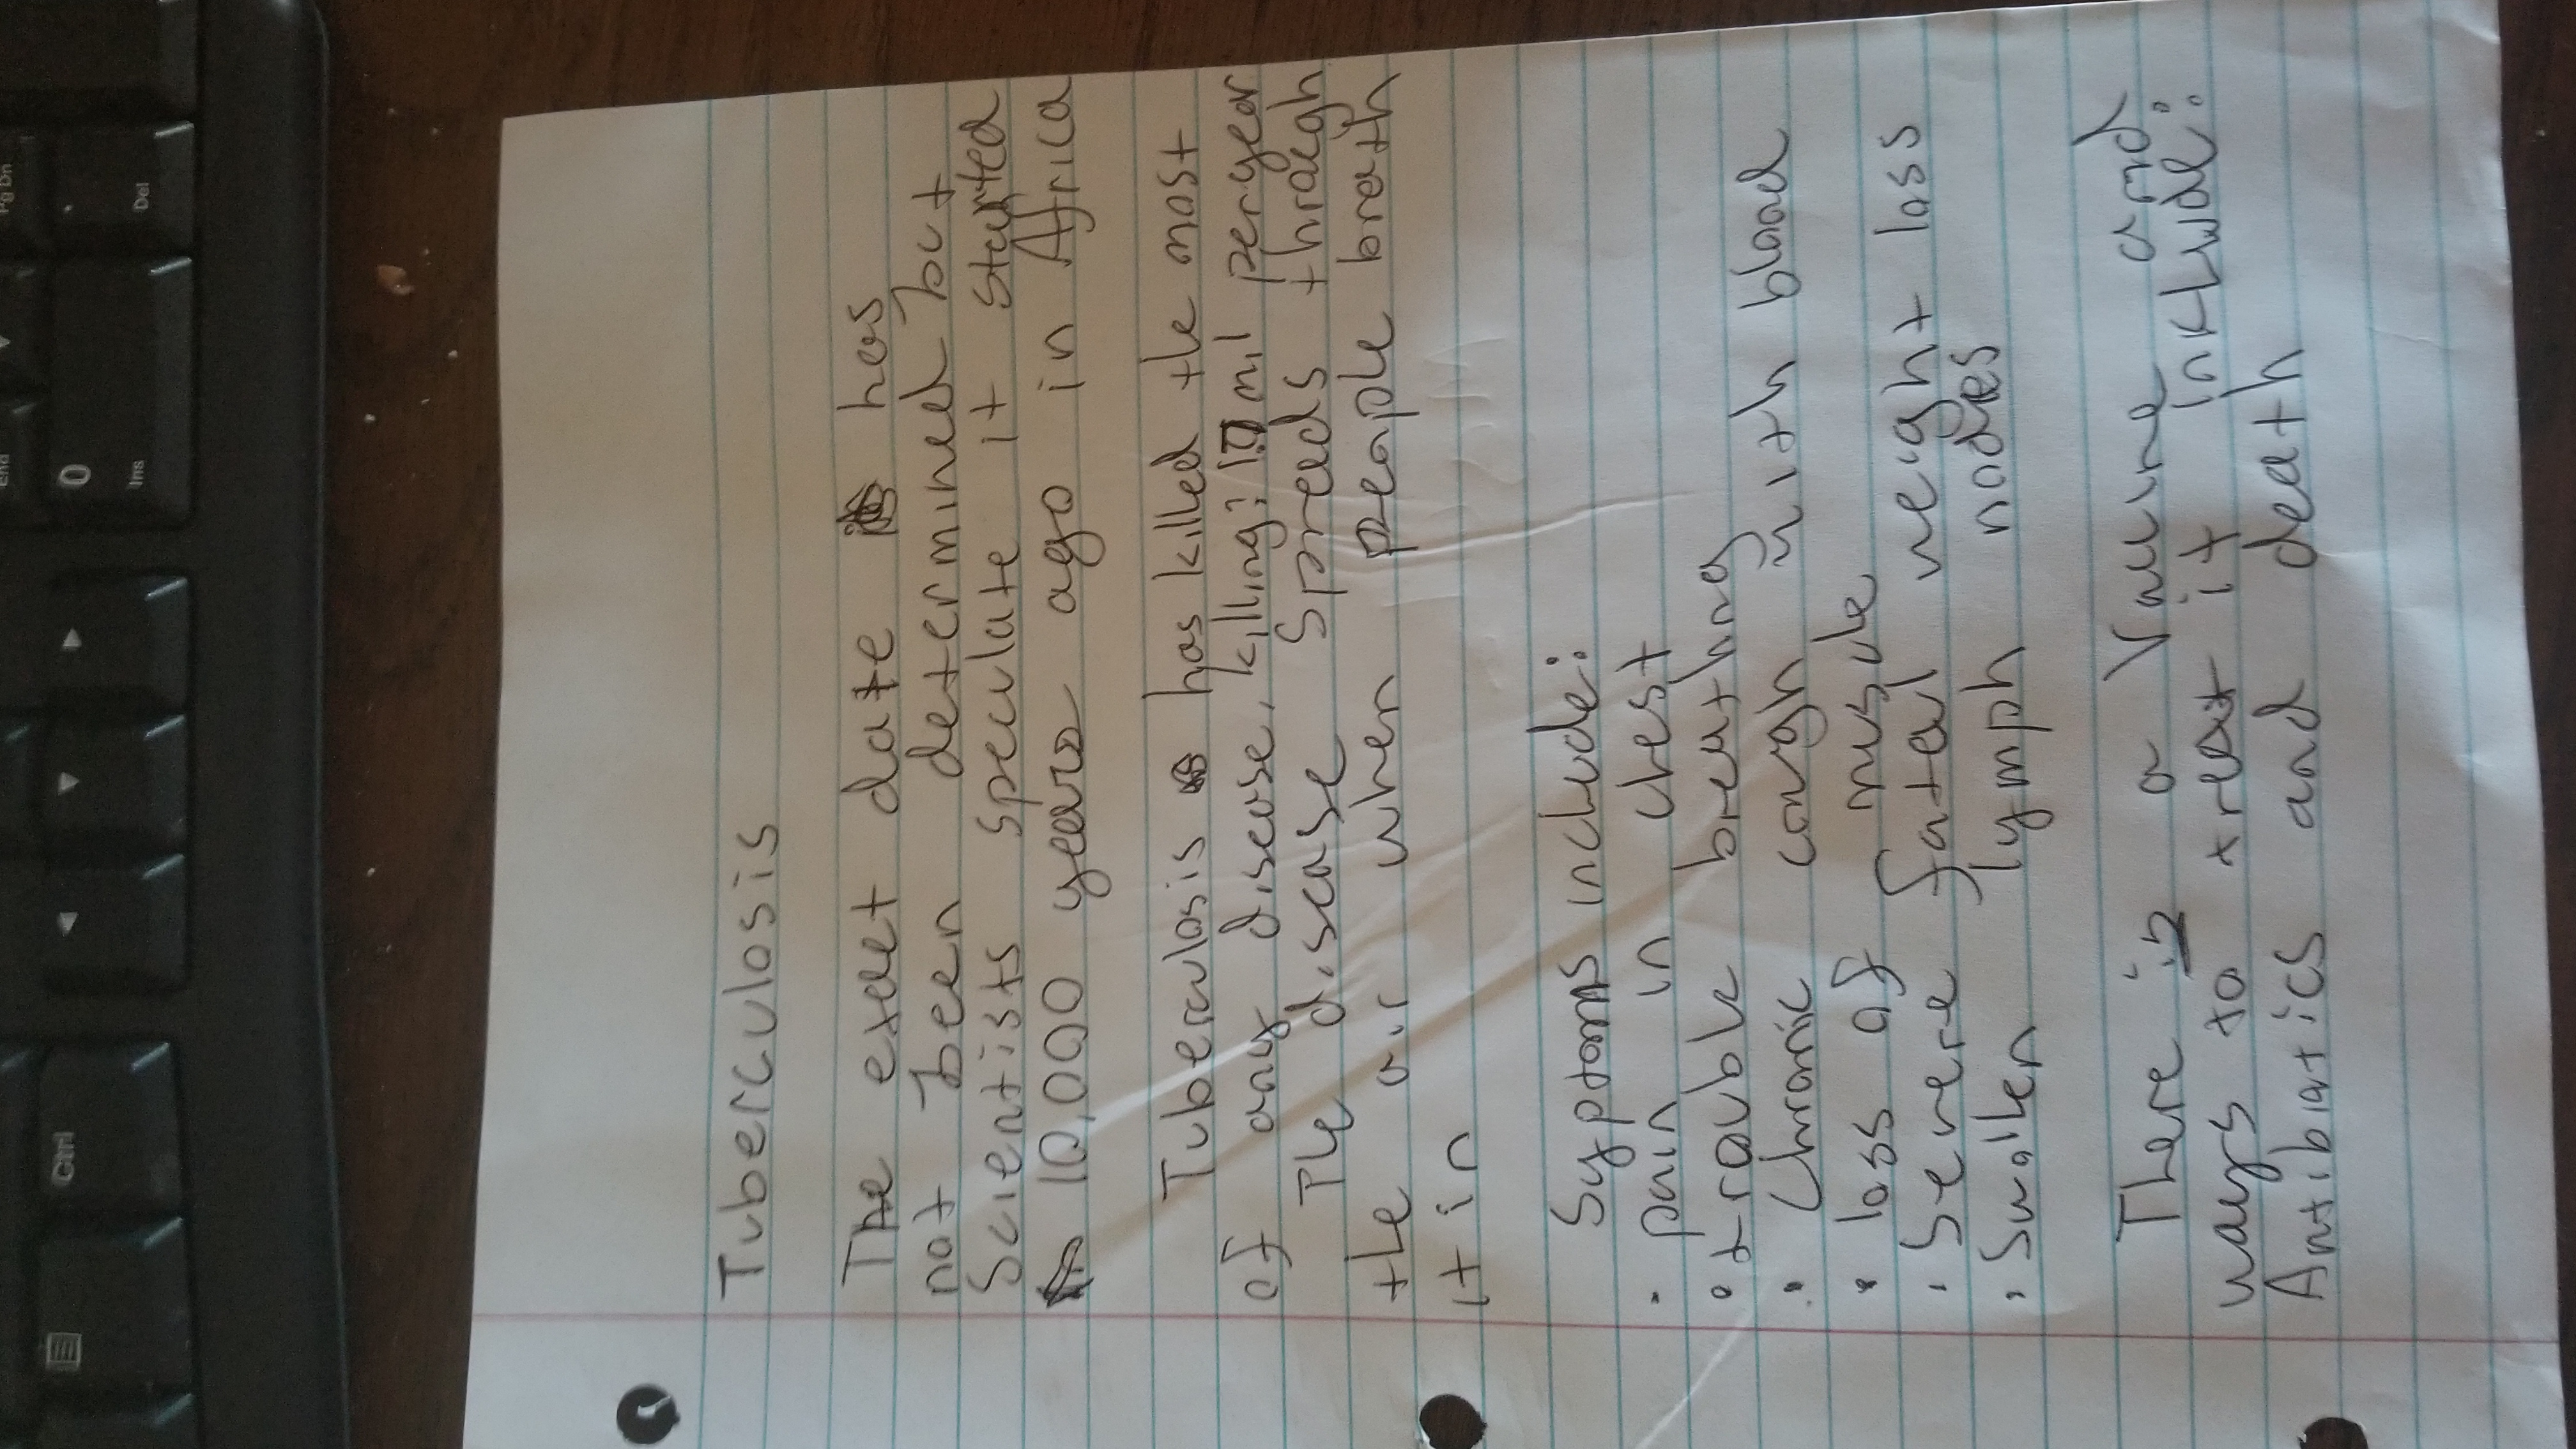 Tuberculosis
The exact date has
not been determined but
Scientists speculate it started
10,000 years ago in Africa
Tuberculosis has killed the most
of any disease, killing mil per year
The disease spreads through
the air when people brath
it in
Syptoms include:
• pain in chest
• trouble breathing
• Chronic cough with blood
• loss of musule
• Severe fatal weight loss
• Swollen lymph nodes
There is a Vacine and
ways to treat it inkLude:
Antibiatics and death
Pg Dn
Del
End
0
Ins
Ctrl